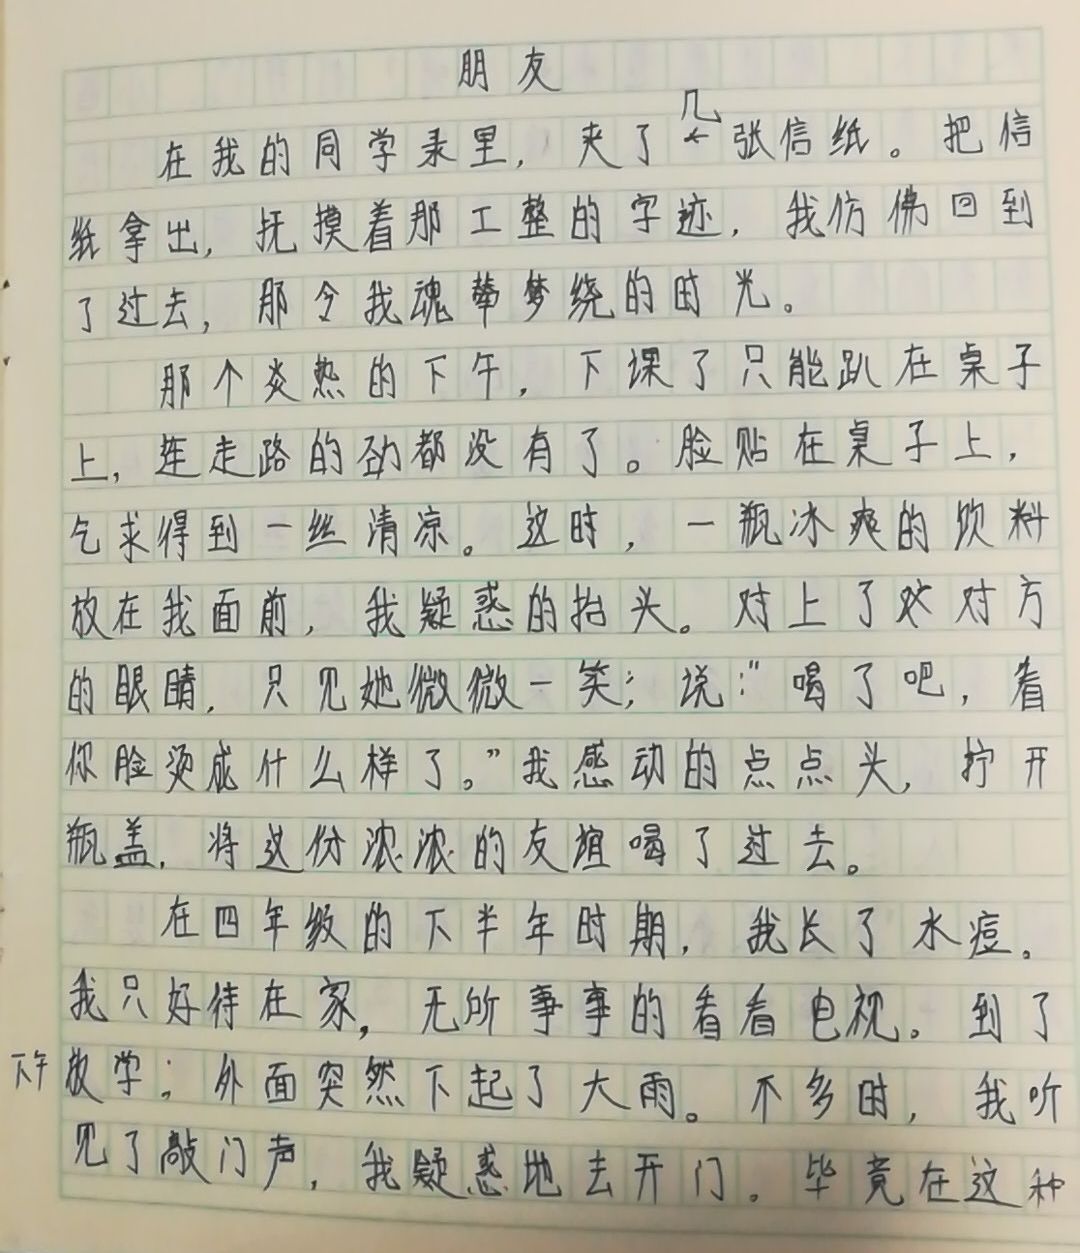 朋友
在我的同学录里，夹了几张信纸。把信
纸拿出，抚摸着那工整的字迹，我仿佛回到
了过去，那令我魂牵梦绕的时光。
那个炎热的下午，下课了只能趴在桌子
上，连走路的劲都没有了。脸贴在桌子上，
乞求得到一丝清凉。这时，一瓶冰爽的饮料
放在我面前，我疑惑的抬头。对上了对方
的眼睛，只见她微微一笑；说："喝了吧，看
你脸烫成什么样了。"我感动的点点头，拧开
瓶盖，将这份浓浓的友谊喝了过去。
在四年级的下半年时期，我长了水痘。
我只好待在家，无所事事的看看电视。到了
下午放学；外面突然下起了大雨。不多时，我听
见了敲门声，我疑惑地去开门。毕竟在这种